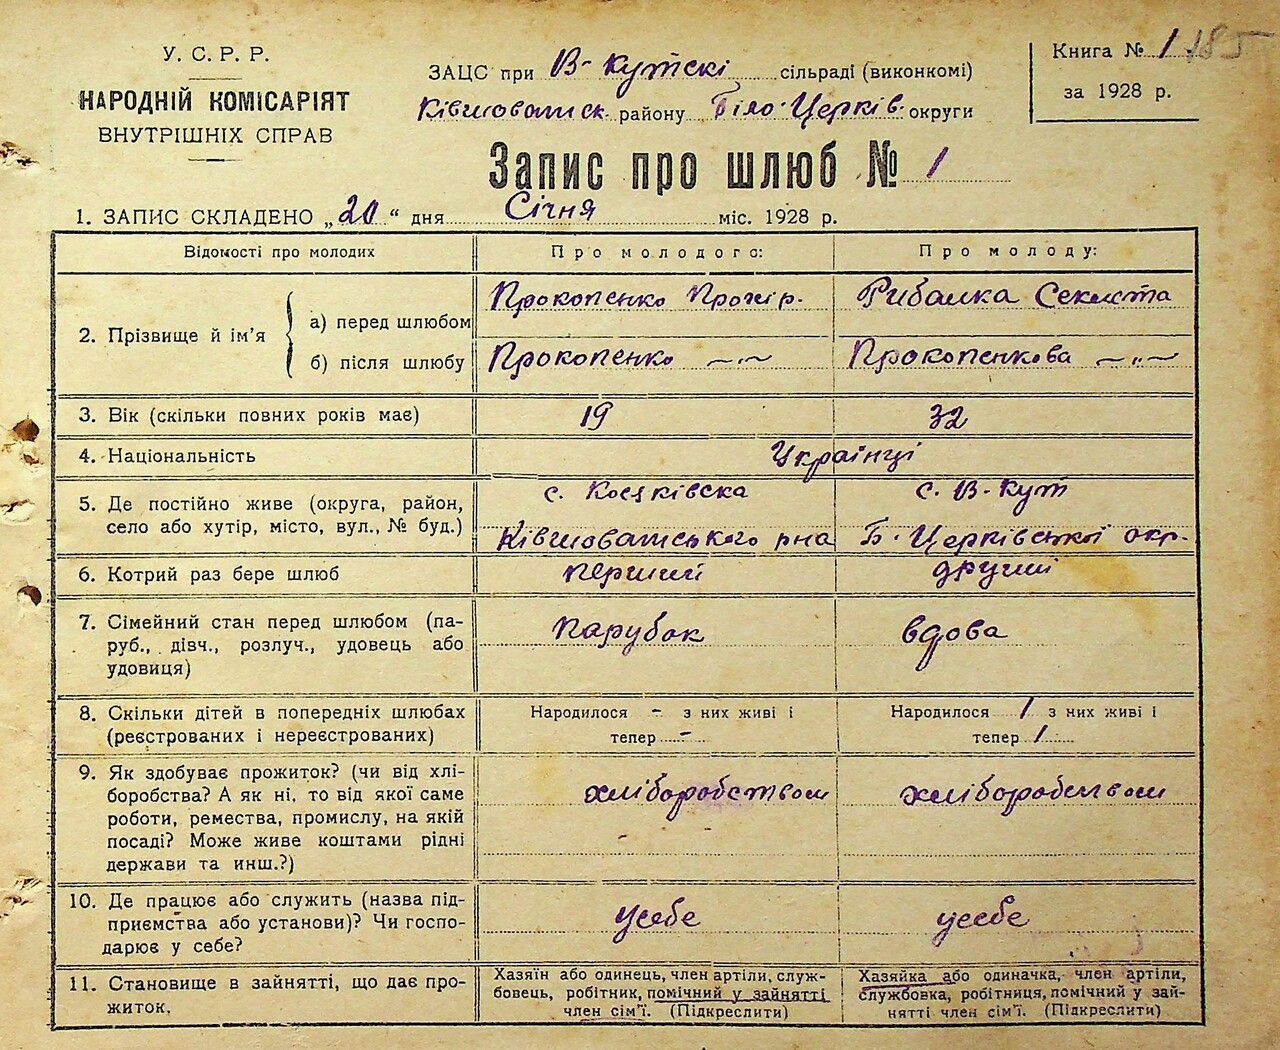 У. С. Р. Р.
НАРОДНІЙ КОМІСАРІЯТ
ВНУТРІШНІХ СПРАВ
ЗАЦС при В-Кутскі сільраді (виконкомі)
Ківшоватск. району Біло-Церків. округи
Книга № 1 185
за 1928 р.
Запис про шлюб № 1
1. ЗАПИС СКЛАДЕНО „20“ дня Січня міс. 1928 р.
Відомості про молодих
Про молодого:
Про молоду:
2. Прізвище й ім'я
а) перед шлюбом
Прокопенко Прохір.
Рибалка Секлета
б) після шлюбу
Прокопенко —„—
Прокопенкова —„—
3. Вік (скільки повних років має)
19
32
4. Національність
Українці
5. Де постійно живе (округа, район,
село або хутір, місто, вул., № буд.)
с. Косяківска
Ківшоватського рна
с. В-Кут
Б-Церківської окр.
6. Котрий раз бере шлюб
перший
другий
7. Сімейний стан перед шлюбом (па-
руб., дівч., розлуч., удовець або
удовиця)
парубок
вдова
8. Скільки дітей в попередніх шлюбах
(реєстрованих і нереєстрованих)
Народилося - з них живі і
тепер -
Народилося 1 з них живі і
тепер 1
9. Як здобуває прожиток? (чи від хлі-
боробства? А як ні, то від якої саме
роботи, ремества, промислу, на якій
посаді? Може живе коштами рідні
держави та инш.?)
хліборобством
хліборобством
10. Де працює або служить (назва під-
приємства або установи)? Чи госпо-
дарює у себе?
усебе
усебе
11. Становище в зайнятті, що дає про-
житок.
Хазяїн або одинець, член артіли, служ-
бовець, робітник, помічний у зайнятті
член сім'ї. (Підкреслити)
Хазяйка або одиначка, член артіли,
службовка, робітниця, помічний у зай-
нятті член сім'ї. (Підкреслити)